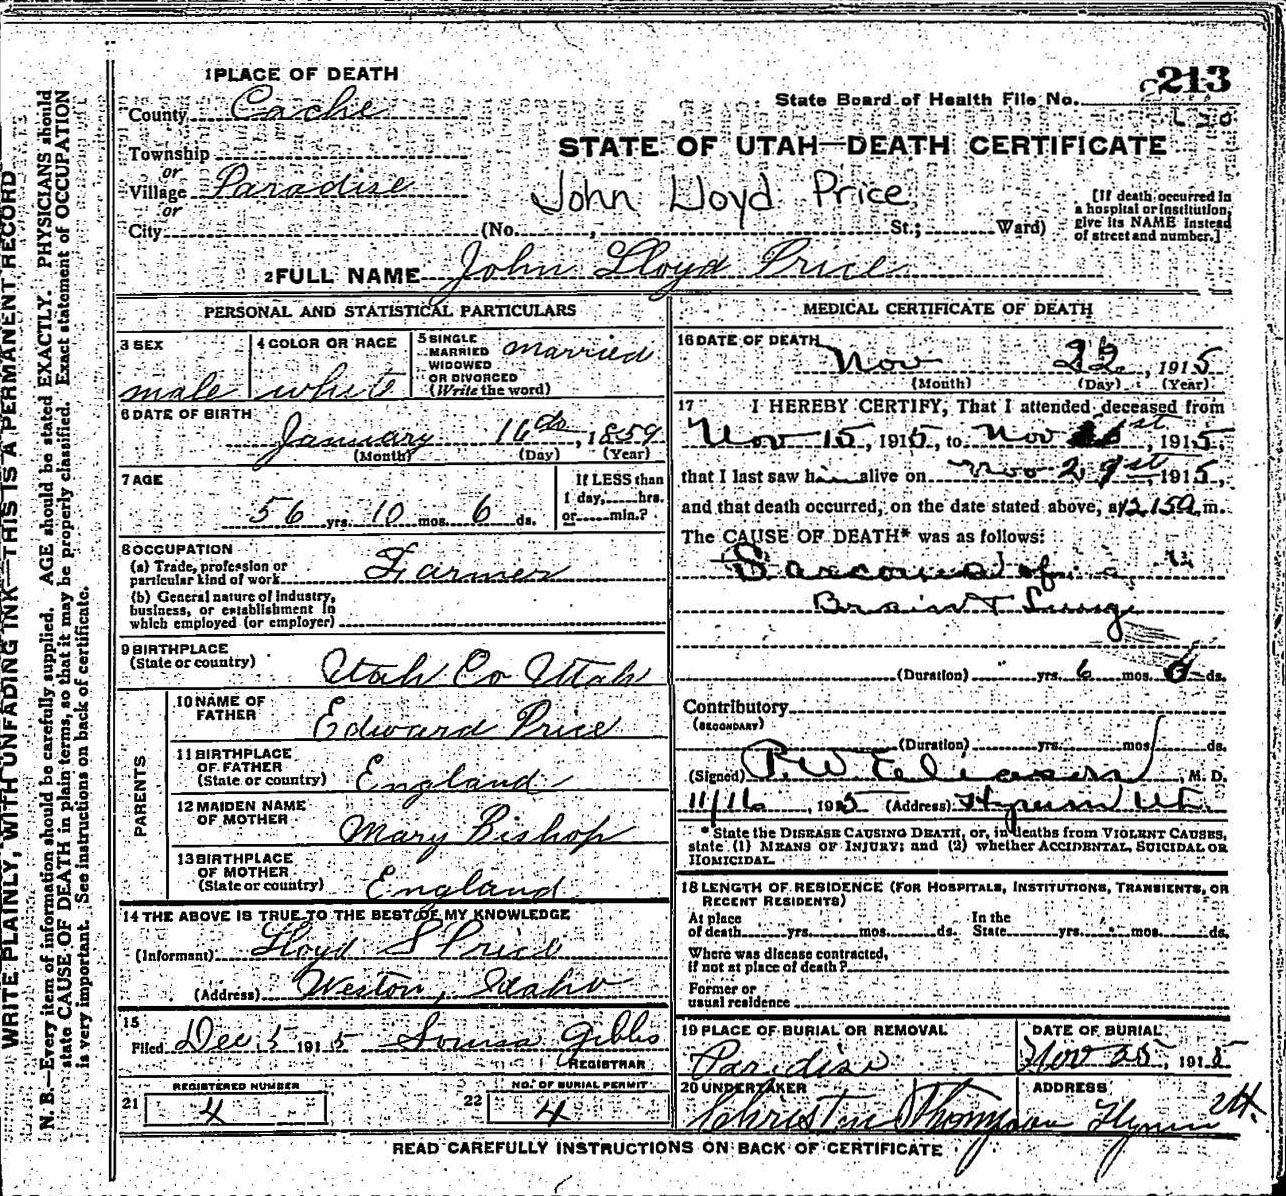 WRITE PLAINLY, WITH UNFADING INK—THIS IS A PERMANENT RECORD
N. B.—Every item of information should be carefully supplied. AGE should be stated EXACTLY. PHYSICIANS should
state CAUSE OF DEATH in plain terms, so that it may be properly classified. Exact statement of OCCUPATION
is very important. See instructions on back of certificate.
1 PLACE OF DEATH
County Cache
Township
or
Village Paradise
or
City
213
State Board of Health File No.
STATE OF UTAH—DEATH CERTIFICATE
John Lloyd Price
(No. , St.; Ward)
[If death occurred in
a hospital or institution,
give its NAME instead
of street and number.]
2 FULL NAME John Lloyd Price
PERSONAL AND STATISTICAL PARTICULARS
3 SEX
male
4 COLOR OR RACE
white
5 SINGLE
MARRIED
WIDOWED
OR DIVORCED
(Write the word)
married
6 DATE OF BIRTH
January 16, 1859
(Month) (Day) (Year)
7 AGE
56 yrs. 10 mos. 6 ds.
If LESS than
1 day, hrs.
or min.?
8 OCCUPATION
(a) Trade, profession or
particular kind of work Farmer
(b) General nature of industry,
business, or establishment in
which employed (or employer)
9 BIRTHPLACE
(State or country) Utah Co Utah
PARENTS
10 NAME OF
FATHER Edward Price
11 BIRTHPLACE
OF FATHER
(State or country) England
12 MAIDEN NAME
OF MOTHER Mary Bishop
13 BIRTHPLACE
OF MOTHER
(State or country) England
14 THE ABOVE IS TRUE TO THE BEST OF MY KNOWLEDGE
(Informant) Lloyd S Price
(Address) Weston, Idaho
15
Filed Dec 5 1915 Louisa Gibbs
REGISTRAR
REGISTERED NUMBER
21 4
NO. OF BURIAL PERMIT
22 4
MEDICAL CERTIFICATE OF DEATH
16 DATE OF DEATH
Nov 22, 1915
(Month) (Day) (Year)
17 I HEREBY CERTIFY, That I attended deceased from
Nov 15, 1915, to Nov , 1915,
that I last saw him alive on Nov , 1915,
and that death occurred, on the date stated above, at m.
The CAUSE OF DEATH* was as follows:
Sarcoma of
Brain & Lungs
(Duration) yrs. 6 mos. ds.
Contributory
(SECONDARY)
(Duration) yrs. mos. ds.
(Signed) , M. D.
11/16, 1915 (Address) Hyrum Ut.
*State the DISEASE CAUSING DEATH, or, in deaths from VIOLENT CAUSES,
state (1) MEANS OF INJURY; and (2) whether ACCIDENTAL, SUICIDAL OR
HOMICIDAL.
18 LENGTH OF RESIDENCE (FOR HOSPITALS, INSTITUTIONS, TRANSIENTS, OR
RECENT RESIDENTS)
At place
of death yrs. mos. ds.
In the
State yrs. mos. ds.
Where was disease contracted,
if not at place of death?
Former or
usual residence
19 PLACE OF BURIAL OR REMOVAL
Paradise
DATE OF BURIAL
Nov 25, 1915
20 UNDERTAKER
ADDRESS
Hyrum
READ CAREFULLY INSTRUCTIONS ON BACK OF CERTIFICATE